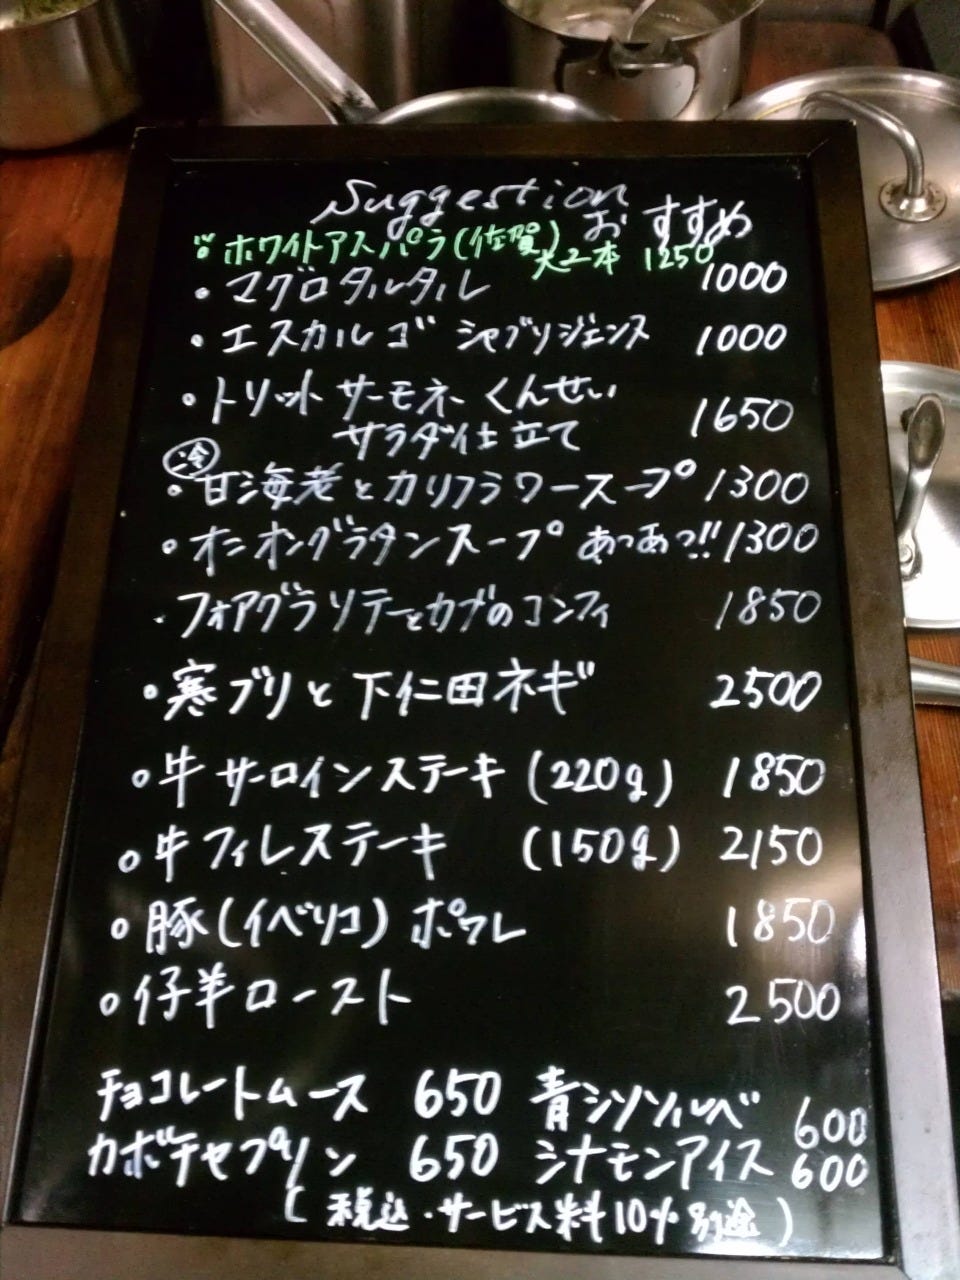 Suggestion
おすすめ
ホワイトアスパラ(佐賀)大2本 1250
・マグロタルタル 1000
・エスカルゴ シャブリジェンヌ 1000
・トリュット サーモネ くんせい
サラダ仕立て 1650
冷
・甘海老とカリフラワースープ 1300
・オニオングラタンスープ あつあつ!! 1300
・フォアグラソテーとカブのコンフィ 1850
・寒ブリと下仁田ネギ 2500
○牛サーロインステーキ (220g) 1850
○牛フィレステーキ (150g) 2150
○豚(イベリコ)ポワレ 1850
○仔羊ロースト 2500
チョコレートムース 650 青シソソルベ 600
カボチャプリン 650 シナモンアイス 600
(税込・サービス料10%別途)